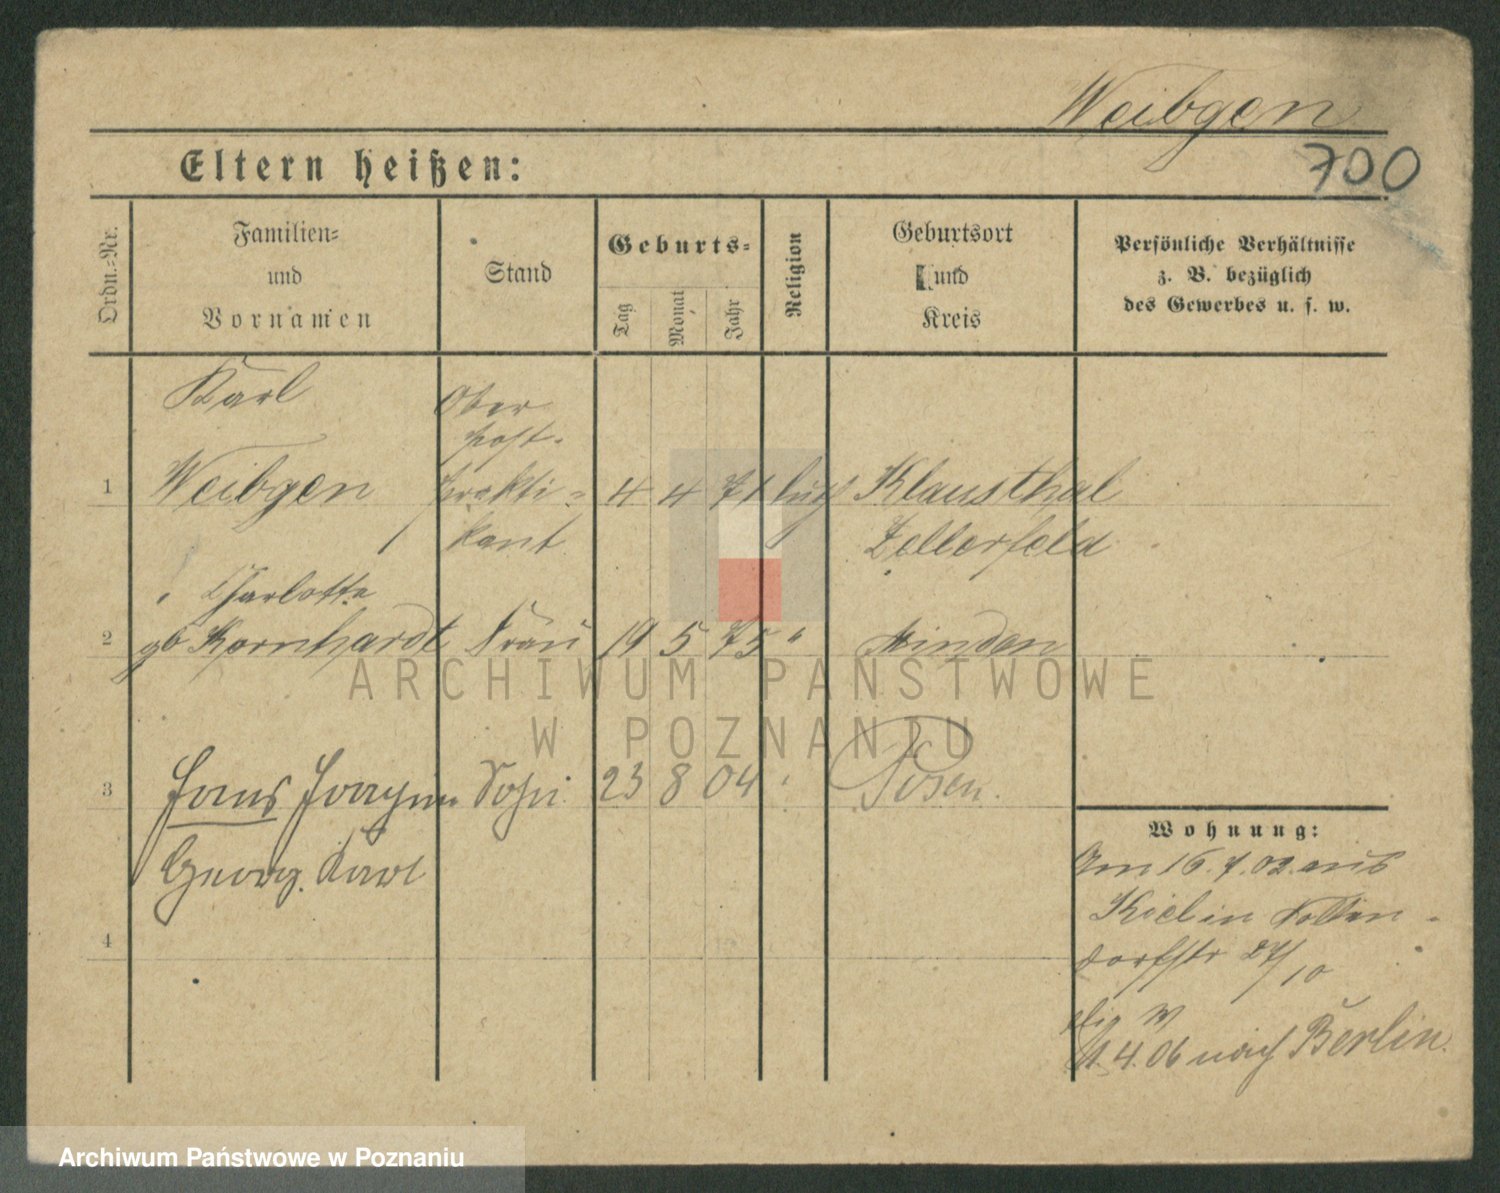 Weibgen
700
Eltern heißen:
Ordn.-Nr.
Familien-
und
Vornamen
Stand
Geburts-
Tag
Monat
Jahr
Religion
Geburtsort
und
Kreis
Persönliche Verhältnisse
z. B. bezüglich
des Gewerbes u. s. w.
Karl
Ober
post-
1 Weibgen prakti- 4 4 71 luth Klausthal
kant Zellerfeld
Charlotte
2 gb Kornhardt Frau 19 5 75 " Minden
3 Hans Joachim Sohn 23 8 04 " Posen.
Georg. Karl
4
Wohnung:
Am 16.7.02 aus
Kiel in
dorfstr 27/10
1.4.06 nach Berlin.
ARCHIWUM PAŃSTWOWE
W POZNANIU
Archiwum Państwowe w Poznaniu